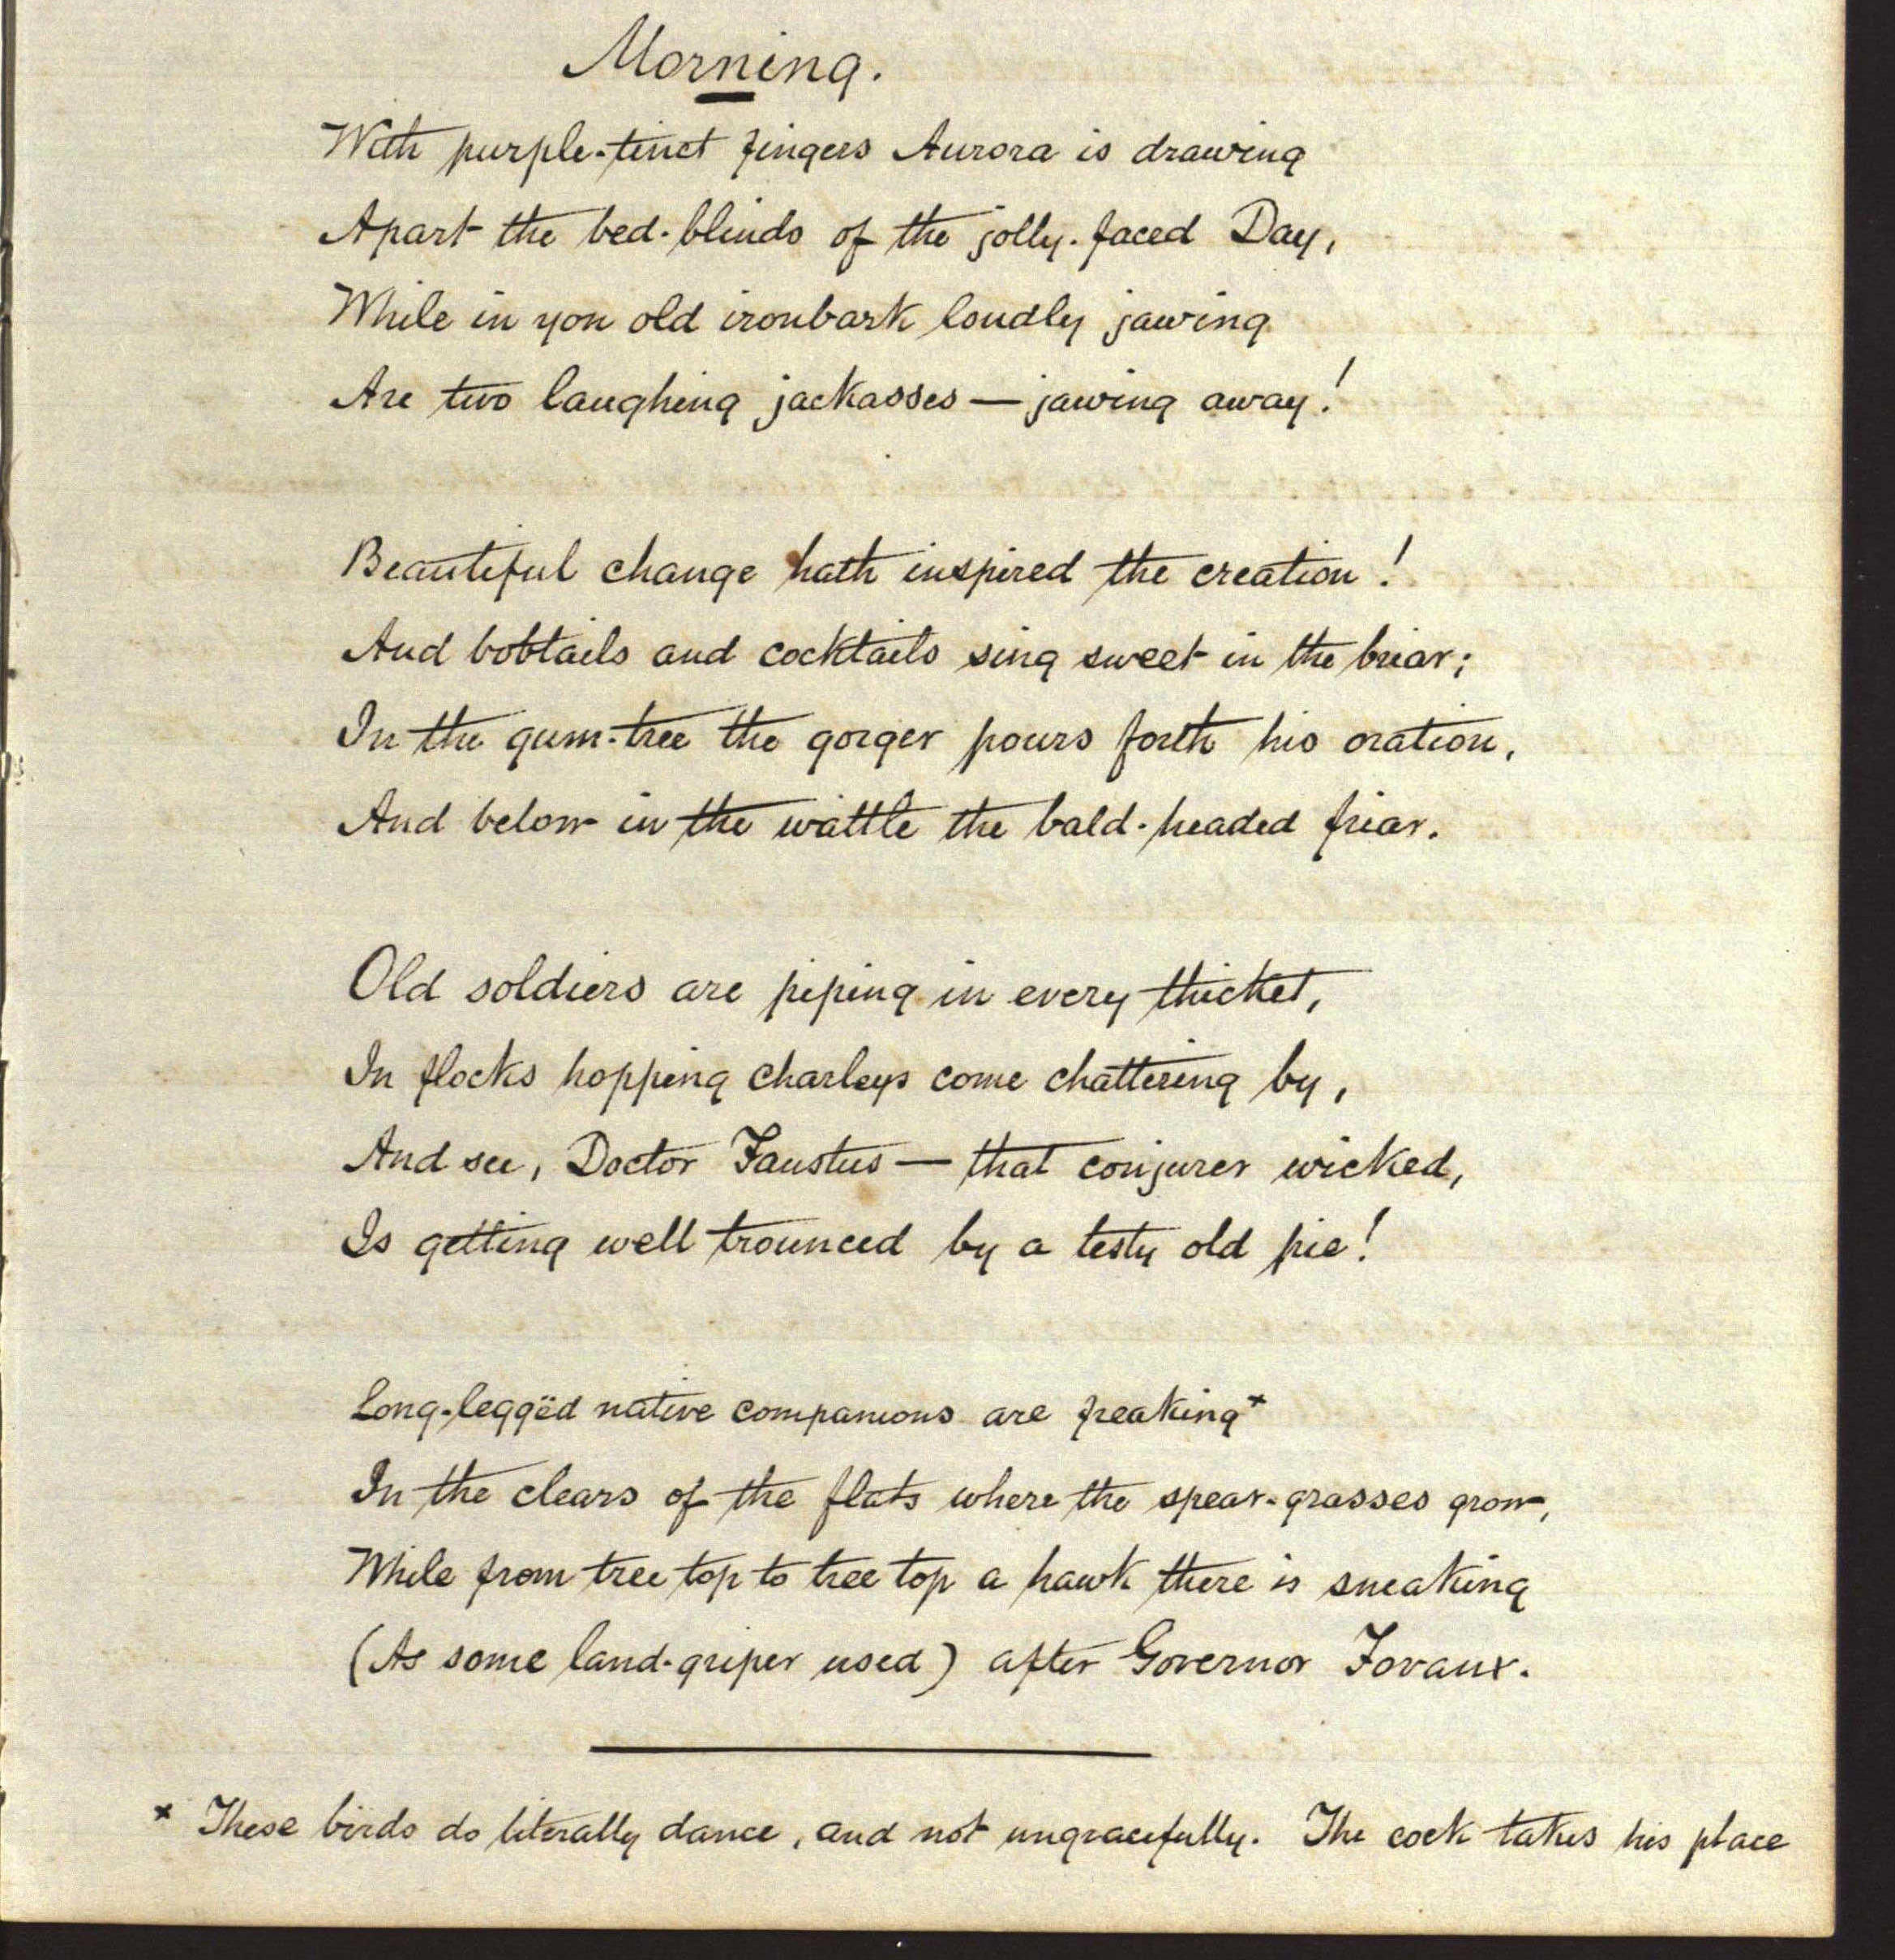 Morning.
With purple-tinct fingers Aurora is drawing
Apart the bed-blinds of the jolly-faced Day,
While in yon old ironbark loudly jawing
Are two laughing jackasses — jawing away!
Beautiful change hath inspired the creation!
And bobtails and cocktails sing sweet in the briar;
In the gum-tree the gorger pours forth his oration,
And below in the wattle the bald-headed friar.
Old soldiers are piping in every thicket,
In flocks hopping charleys come chattering by,
And see, Doctor Faustus — that conjurer wicked,
Is getting well trounced by a testy old pie!
Long-leggëd native companions are freaking*
In the clears of the flats where the spear-grasses grow,
While from tree top to tree top a hawk there is sneaking
(As some land-griper used) after Governor Fovaux.
* These birds do literally dance, and not ungracefully. The cock takes his place